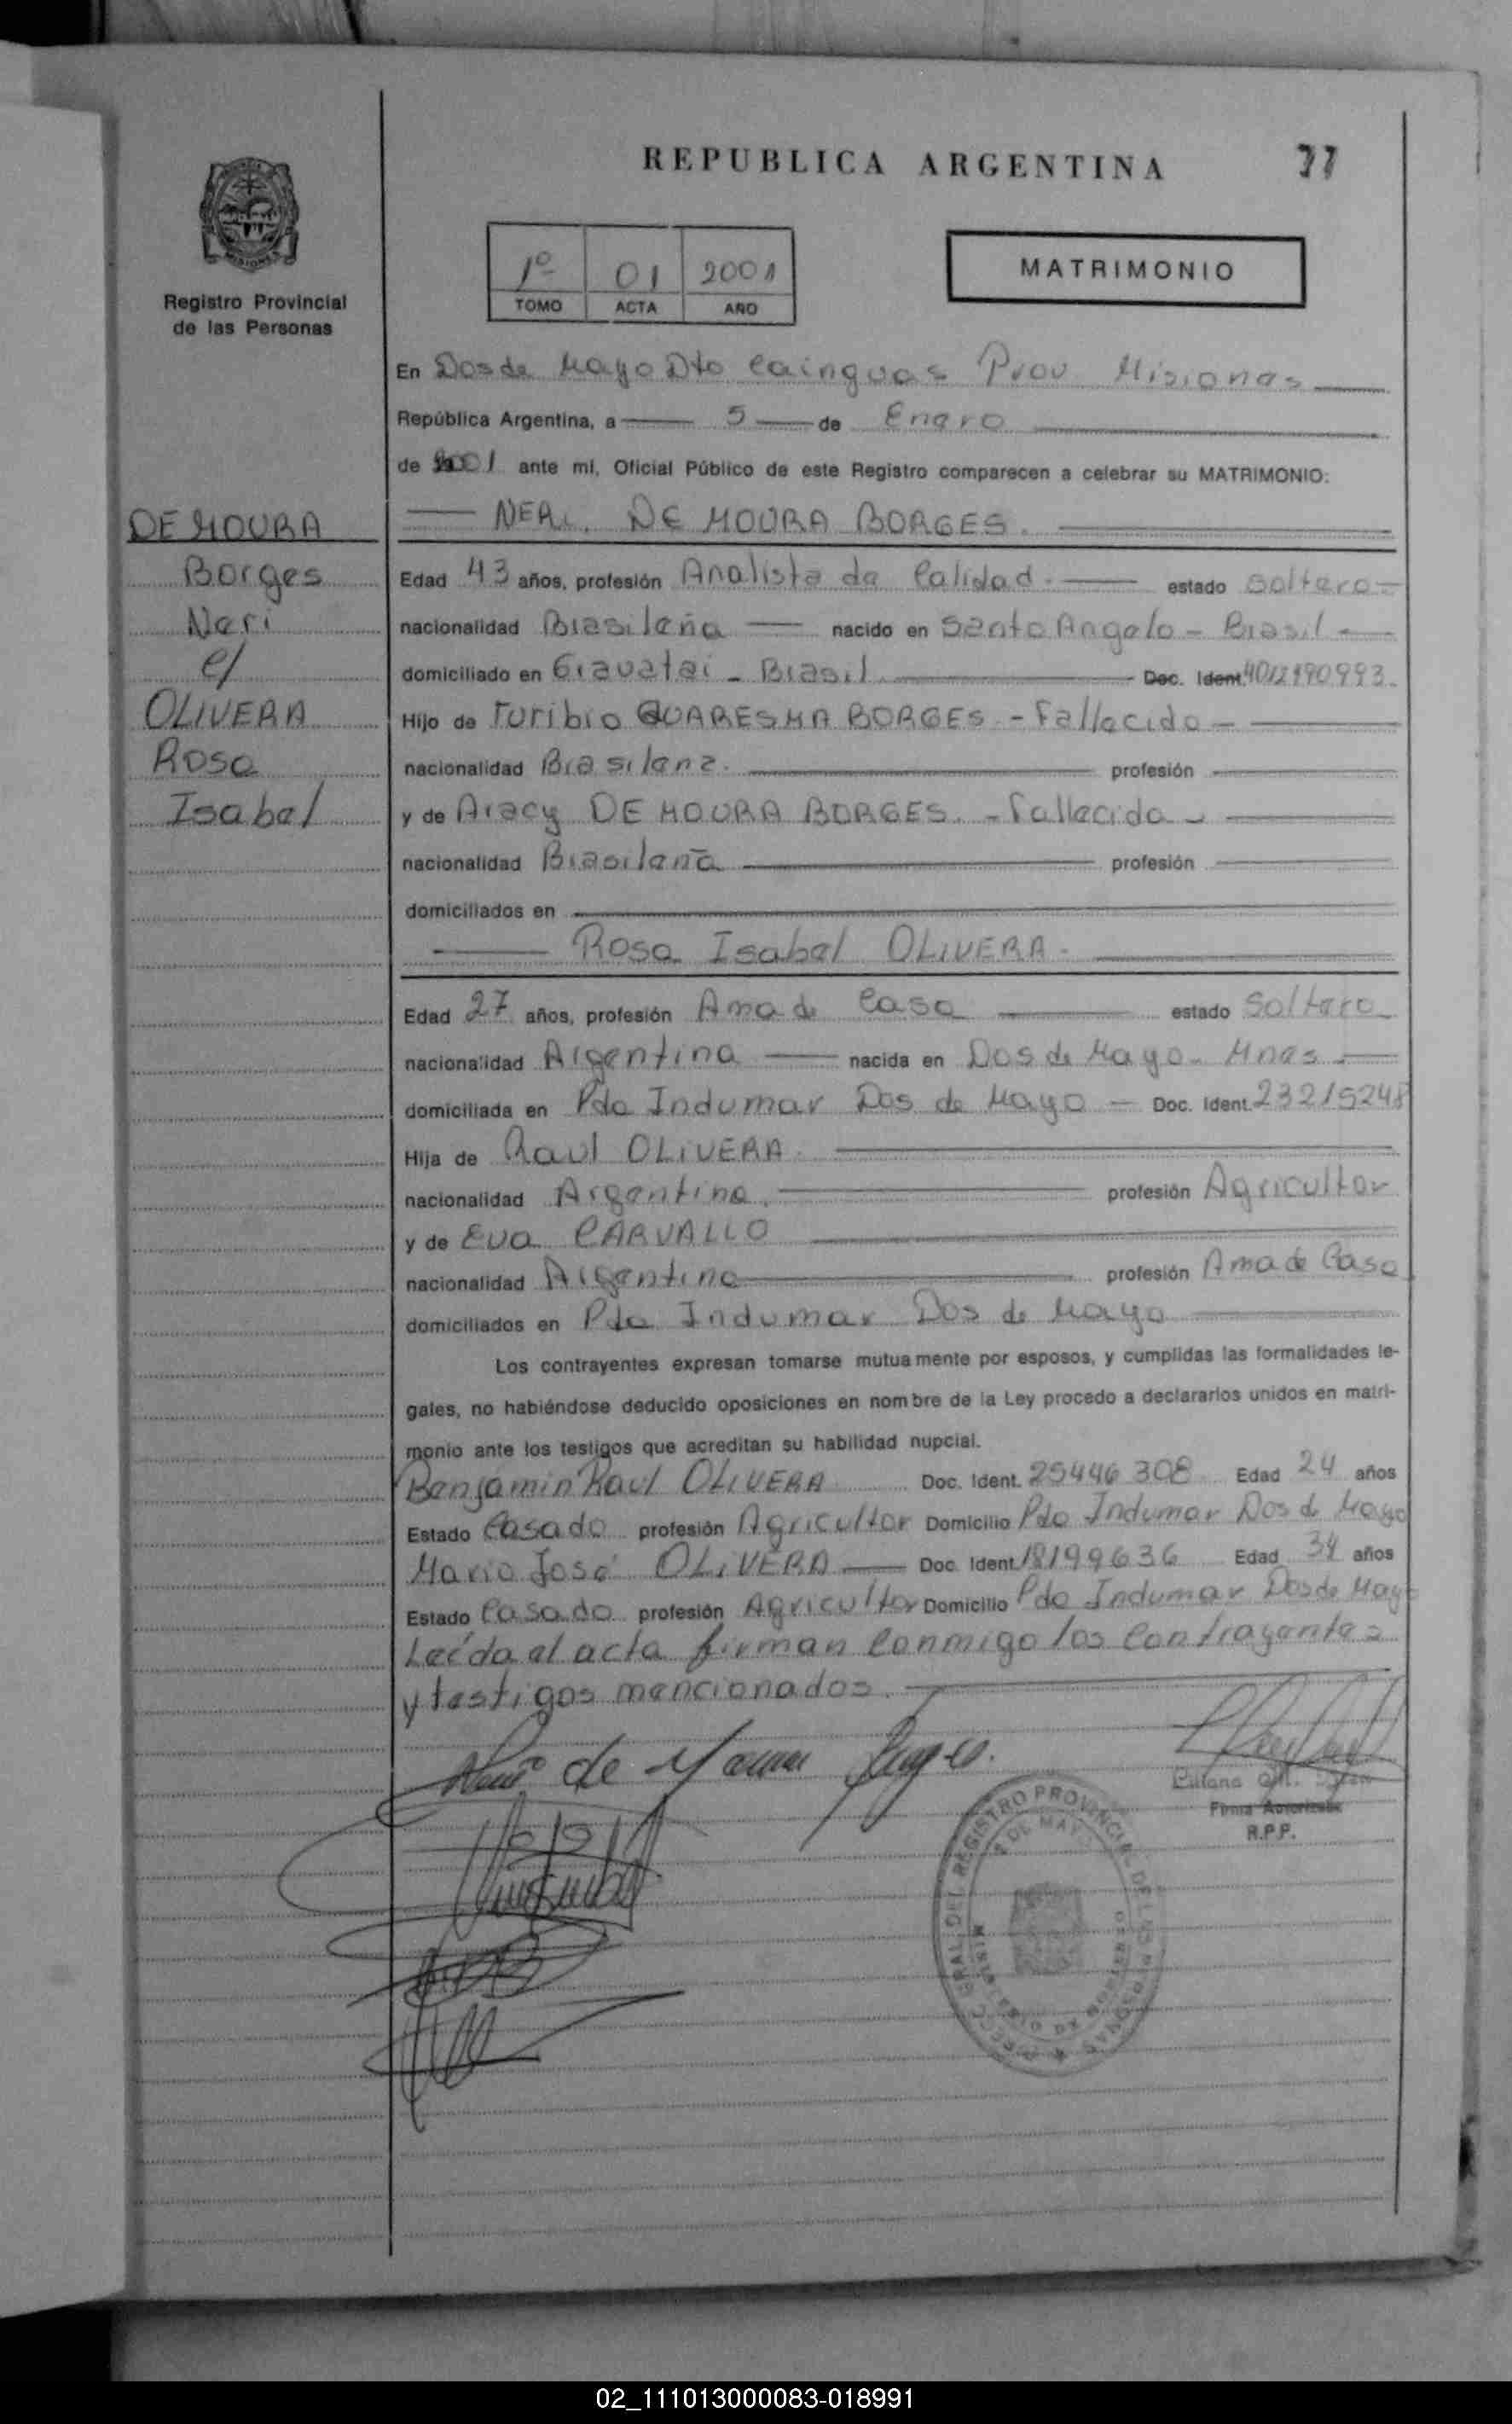 REPUBLICA ARGENTINA 77
Registro Provincial
de las Personas
1º 01 2001
TOMO ACTA AÑO
MATRIMONIO
En Dos de Mayo Dto Cainguas Prov. Misiones
República Argentina, a 5 de Enero
de 2001 ante mí, Oficial Público de este Registro comparecen a celebrar su MATRIMONIO:
DE MOURA
Borges
Neri
c/
OLIVERA
Rosa
Isabel
NERI. DE MOURA BORGES.
Edad 43 años, profesión Analista de Calidad. estado Soltero
nacionalidad Brasileña nacido en Santo Angelo - Brasil
domiciliado en Gravatai - Brasil Doc. Ident. 4012190993.
Hijo de Turibio QUARESMA BORGES - Fallecido -
nacionalidad Brasilena. profesión
y de Aracy DE MOURA BORGES. - Fallecida -
nacionalidad Brasileña profesión
domiciliados en
Rosa Isabel OLIVERA.
Edad 27 años, profesión Ama de Casa estado Soltera
nacionalidad Argentina nacida en Dos de Mayo - Mnes
domiciliada en Pdo Indumar Dos de Mayo - Doc. Ident. 23215248
Hija de Raul OLIVERA.
nacionalidad Argentina. profesión Agricultor
y de Eva CARVALLO
nacionalidad Argentina profesión Ama de Casa
domiciliados en Pdo Indumar Dos de Mayo
Los contrayentes expresan tomarse mutuamente por esposos, y cumplidas las formalidades le-
gales, no habiéndose deducido oposiciones en nombre de la Ley procedo a declararlos unidos en matri-
monio ante los testigos que acreditan su habilidad nupcial.
Benjamin Raul OLIVERA Doc. Ident. 25446308 Edad 24 años
Estado Casado profesión Agricultor Domicilio Pdo Indumar Dos de Mayo
Mario José OLIVERA Doc. Ident. 18199636 Edad 34 años
Estado Casado profesión Agricultor Domicilio Pdo Indumar Dos de Mayo
Leída el acta firman conmigo los contrayentes
y testigos mencionados.
Neri de Moura Borges.
Firma Autorizada
R.P.P.
02_111013000083-018991